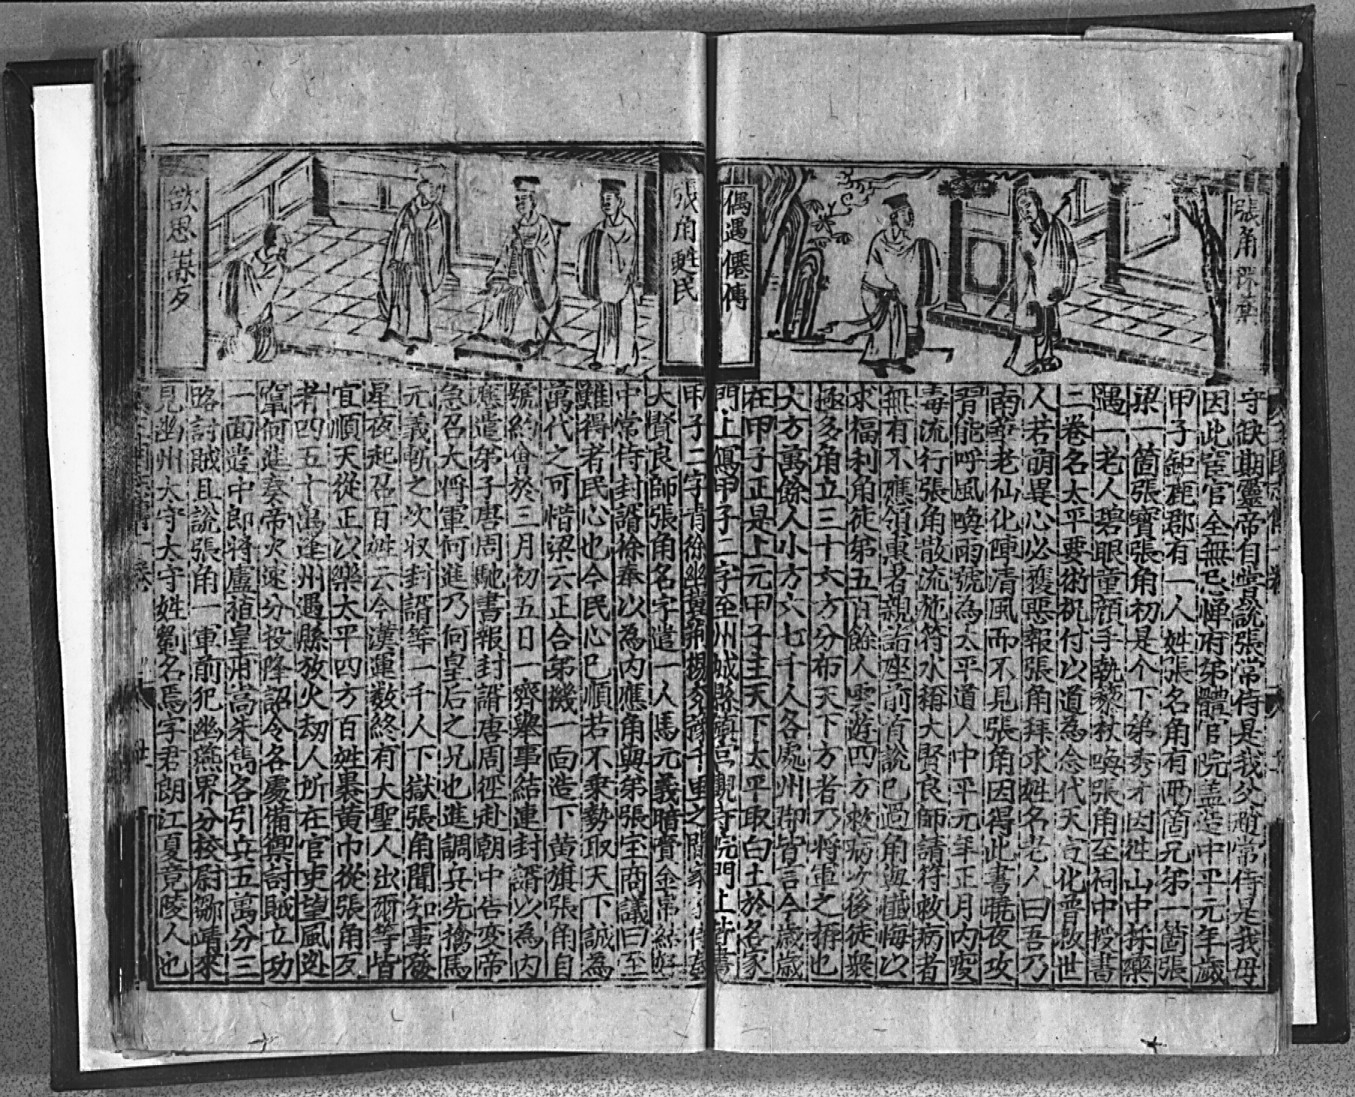 張角採藥
偶遇僊傳
守缺期靈帝自嘗說張常侍是我父趙常侍是我母
因此宦官全無忌憚府第體官院盖造中平元年歲
甲子鉅鹿郡有一人姓張名角有兩箇兄弟一箇張
梁一箇張寶張角初是个下第秀才因往山中採藥
遇一老人碧眼童顏手執藜杖喚張角至祠中授書
二卷名太平要術祝付以道為念代天言化普救世
人若萌異心必獲惡報張角拜求姓名老人曰吾乃
南華老仙化陣清風而不見張角因得此書曉夜攻
習能呼風喚雨號為太平道人中平元年正月內疫
毒流行張角散流施符水稱大賢良師請符救病者
無有不應領惠者親詣座前首說已過角與懺悔以
求福利角徒弟五百餘人雲遊四方救病次後徒衆
極多角立三十六方分布天下方者乃將軍之稱也
大方萬餘人小方六七千人各處州郡皆言今歲歲
在甲子正是上元甲子主天下太平取白土於名家
門上寫甲子二字至州城縣鎮宮觀寺院門上皆書
張角甦民
欲思謀歹
甲子二字青徐幽冀荊揚兗豫千里之間家
大賢良師張角名字遣一人馬元義暗賫金帛結好
中常侍封諝徐奉以為內應角與弟張宝商議曰至
難得者民心也今民心已順若不乘勢取天下誠為
萬代之可惜梁云正合弟機一面造下黄旗張角自
號約會於三月初五日一齊舉事結連封諝以為內
應遣弟子唐周馳書報封諝唐周徑赴朝中告变帝
急召大将軍何進乃何皇后之兄也進調兵先擒馬
元義斬之次収封諝等一千人下獄張角聞知事發
星夜起召百姓云今漢運数終有大聖人出爾等皆
宜順天從正以樂太平四方百姓裹黄巾從張角歹
者四五十萬逢州遇縣放火刼人所在官吏望風逃
竄何進奏帝火速分投降詔令各處備禦討賊立功
一面遣中郎将盧植皇甫嵩朱雋各引兵五萬分三
略討賊且說張角一軍前犯幽燕界分挍尉鄒靖來
見幽州大守大守姓劉名焉字君朗江夏竟陵人也